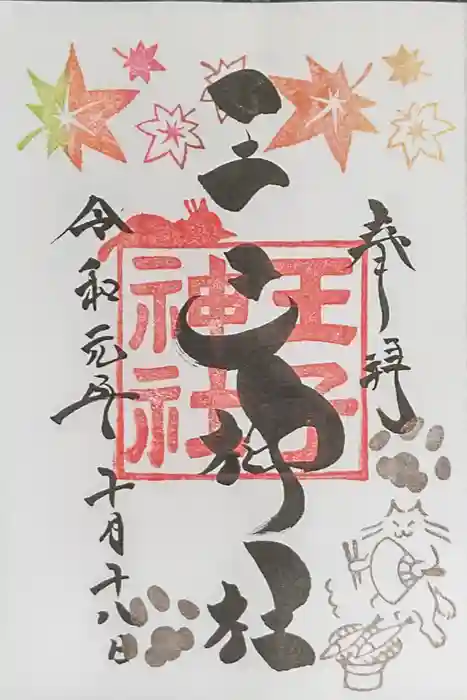 奉拝
王子神社
王子
神社
令和元年十月十八日